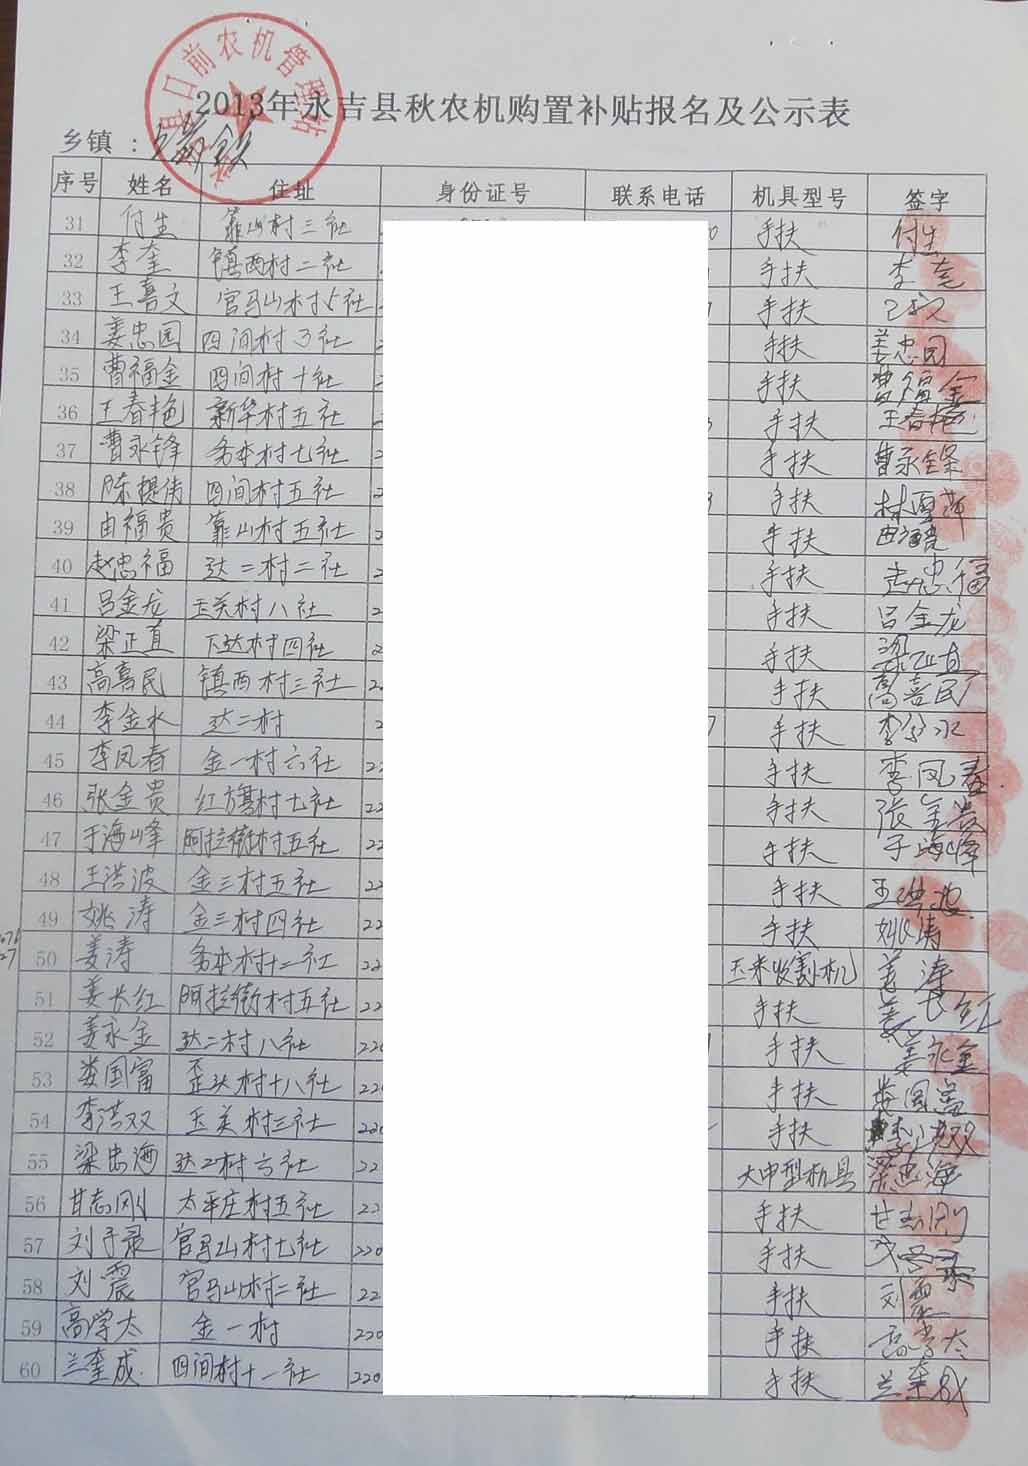 口前农机管理站
2013年永吉县秋农机购置补贴报名及公示表
乡镇：
序号 姓名 住址 身份证号 联系电话 机具型号 签字
31 付生 靠山村三社 手扶 付生
32 李奎 镇西村二社 手扶 李奎
33 王喜文 官马山村5社 手扶
34 姜忠园 四间村3社 手扶 姜忠园
35 曹福金 四间村十社 手扶 曹福金
36 王春艳 新华村五社 手扶 王春艳
37 曹永锋 务本村七社 手扶 曹永锋
38 四间村五社 手扶
39 由福贵 靠山村五社 手扶
40 赵忠福 达二村二社 手扶 赵忠福
41 吕金龙 玉关村八社 手扶 吕金龙
42 梁正直 下达村四社 手扶 梁正直
43 高喜民 镇西村三社 手扶 高喜民
44 李金水 达二村 手扶 李金水
45 李凤春 金一村六社 22 手扶 李凤春
46 张金贵 红旗村七社 22 手扶 张金贵
47 于海峰 阿拉街村五社 22 手扶 于海峰
48 王洪波 金三村五社 22 手扶 王洪波
49 姚涛 金三村四社 22 手扶 姚涛
50 姜涛 务本村十二社 22 玉米收割机 姜涛
51 姜长红 阿拉街村五社 22 手扶 姜长红
52 姜永金 达二村八社 220 手扶 姜永金
53 娄国富 歪头村十八社 220 手扶 娄国富
54 李洪双 玉关村三社 220 手扶 李洪双
55 梁忠海 达二村六社 22 大中型机具 梁忠海
56 甘志刚 太平庄村五社 22 手扶 甘志刚
57 刘子录 官马山村七社 220 手扶
58 刘震 官马山村二社 22 手扶 刘震
59 高学太 金一村 220 手扶 高学太
60 兰奎成 四间村十一社 220 手扶 兰奎成